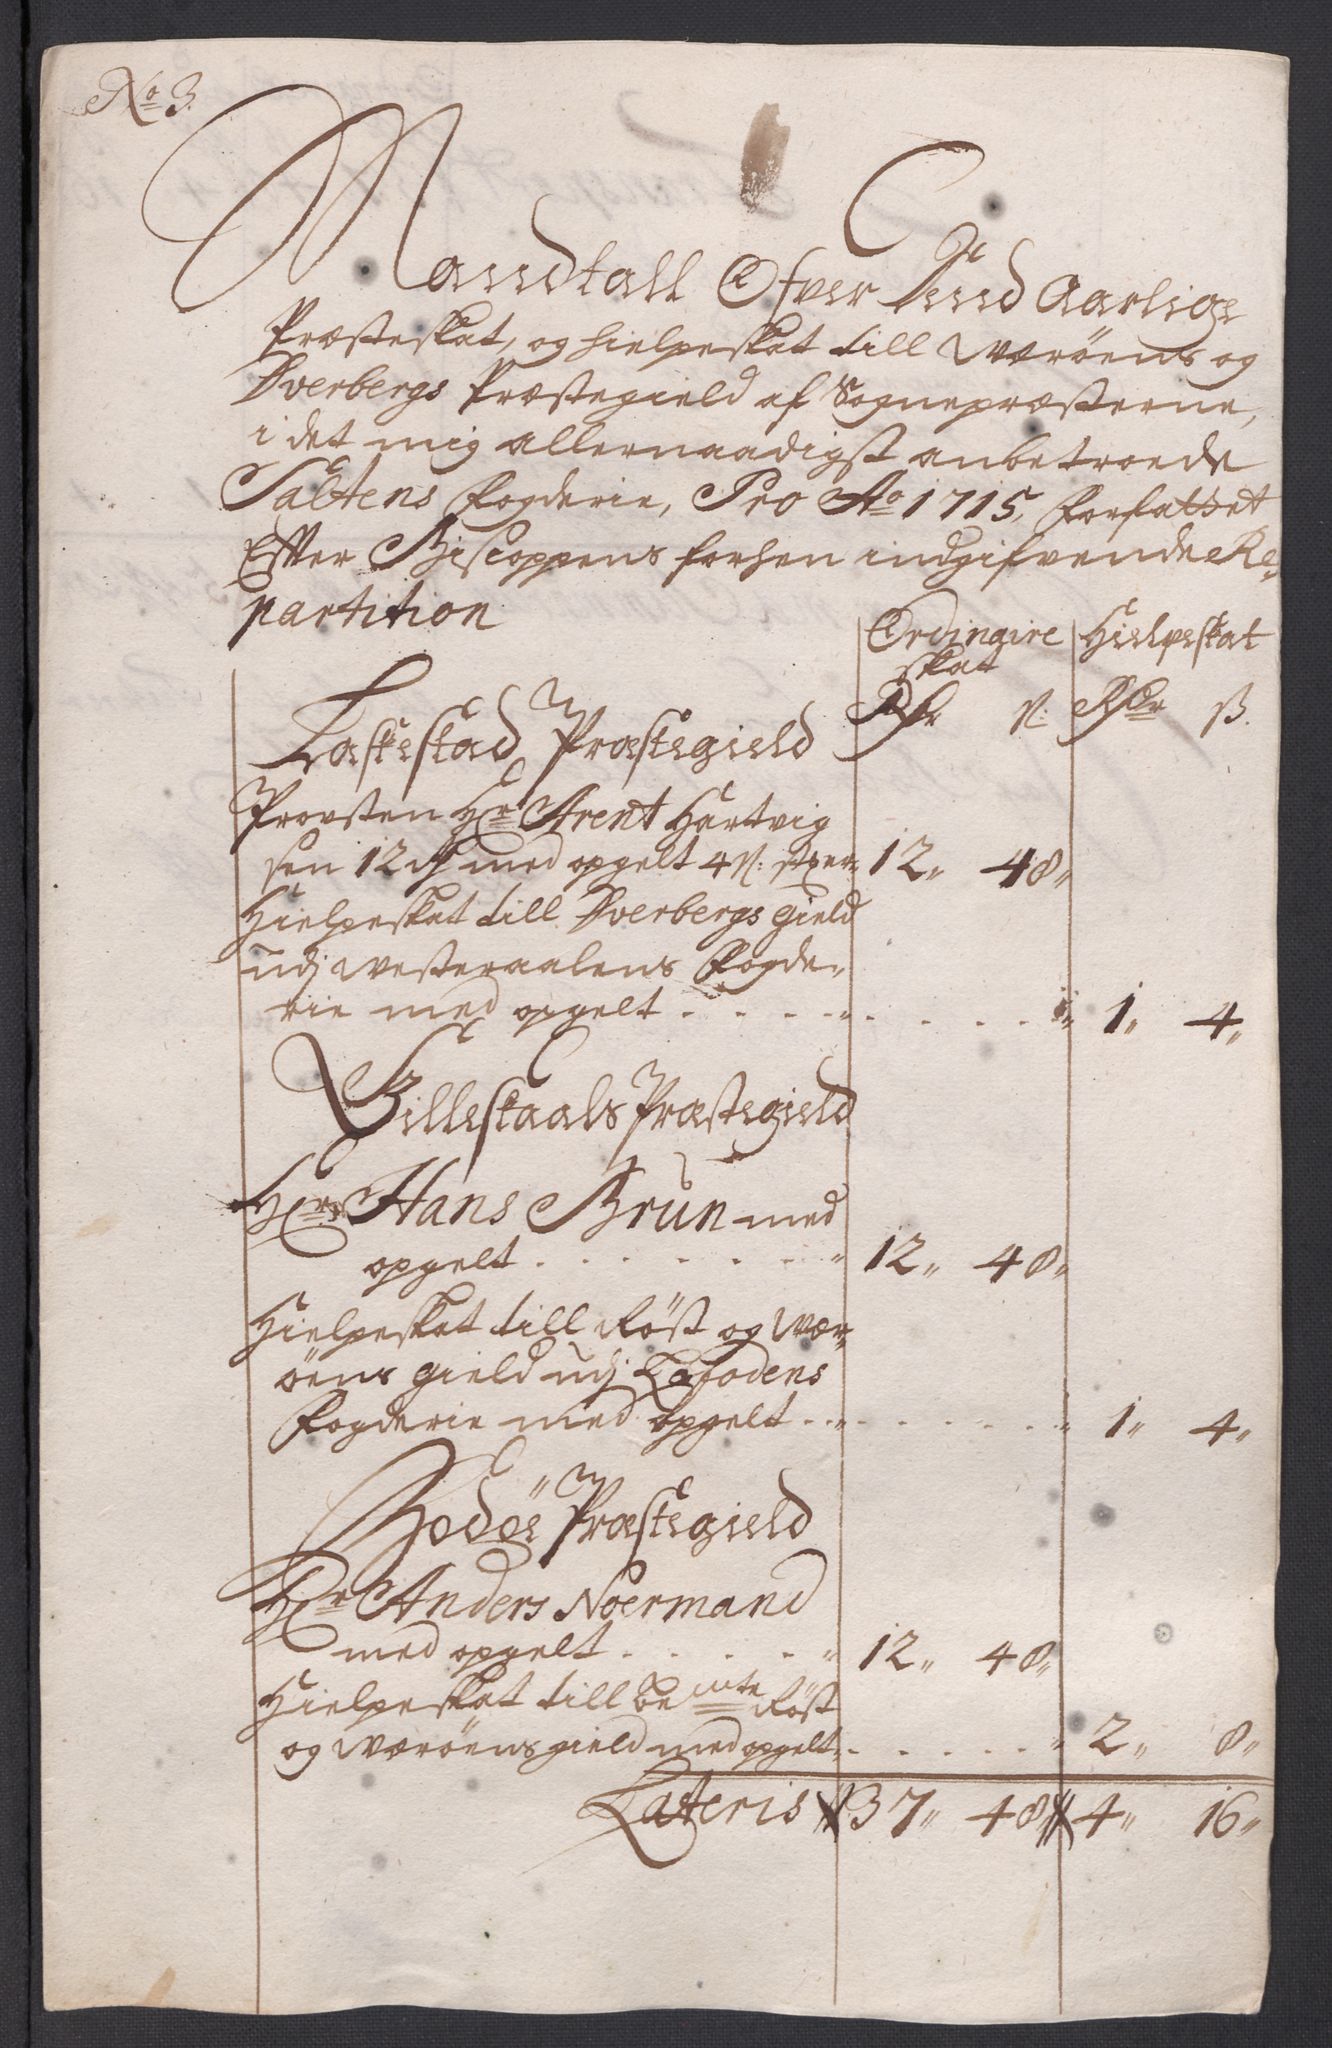 No 3.
Mandtall Ofver Pend Aarlige
Præsteskat, og hielpeskat till Werøens og
Dverbergs Præstegield af Sognepræsterne,
i det mig allernaadigst anbetroede
Saltens fogderie, Pro Ao 1715, forfattet
Efter Biscoppens forhen indgifvende Re,
partition
Ordinaire Hielpeskat
skat
Rdr ß: Rdr ß.
Laskestad Præstegield
Provsten Hr Arent Hartvig
sen 12 rd med opgelt 4 ß: stxer 12" 48"
Hielpeskat till Dverbergs gield
udj Westeraalens fogde,
rie med opgelt . . . . " . . . . " 1" 4"
Gilleskaals Præstegield
Hr Hans Brun med
opgelt . . . . . . . " 12" 48"
Hielpeskat till Røst og Wær,
øens gield udj Lofodens
fogderie med opgelt . . " . . . . . . " 1" 4"
Bodøe Præstegield
Hr Anders Noermand
med opgelt . . . . . " 12" 48"
Hielpeskat till bemte Røst
og Wærøens gield med opgelt " . . . . . " 2" 8"
Lateris 37" 48" 4" 16"